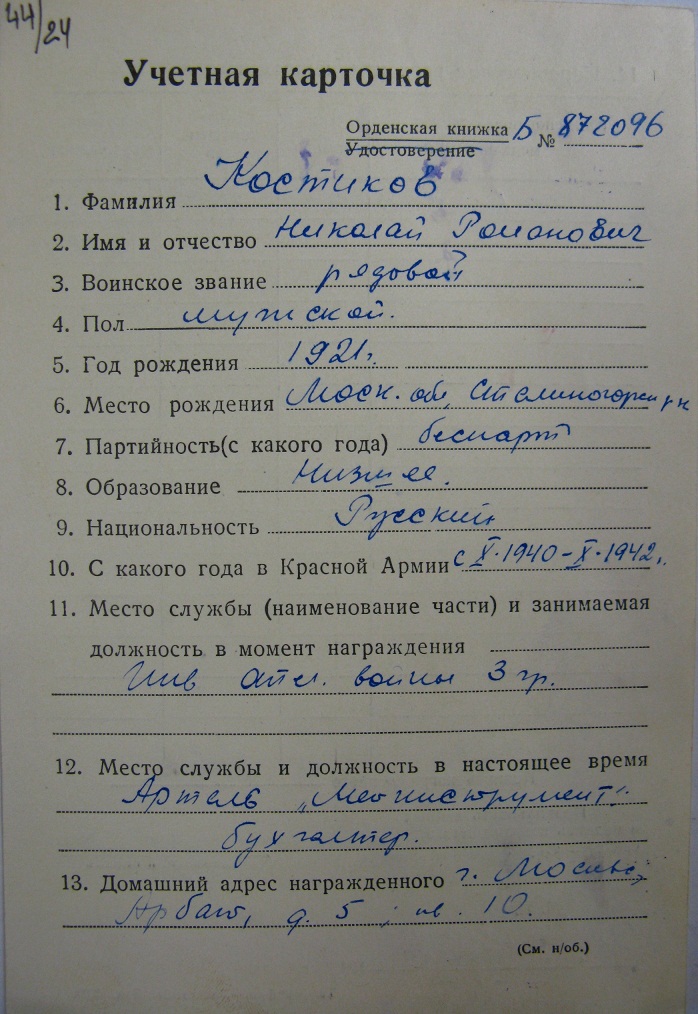 44/24
Учетная карточка
Орденская книжка Б № 872096
Удостоверение
1. Фамилия Костиков
2. Имя и отчество Николай Романович
3. Воинское звание рядовой
4. Пол мужской.
5. Год рождения 1921г.
6. Место рождения Моск. обл, Сталиногорск рн
7. Партийность(с какого года) беспарт
8. Образование Низшее.
9. Национальность Русский
10. С какого года в Красной Армии с X·1940–X·1942г.
11. Место службы (наименование части) и занимаемая
должность в момент награждения
Инв отеч. войны 3 гр.
12. Место службы и должность в настоящее время
Артель "Мединструмент".
бухгалтер.
13. Домашний адрес награжденного г. Москва,
Арбат, д. 5, кв. 10.
(См. н/об.)